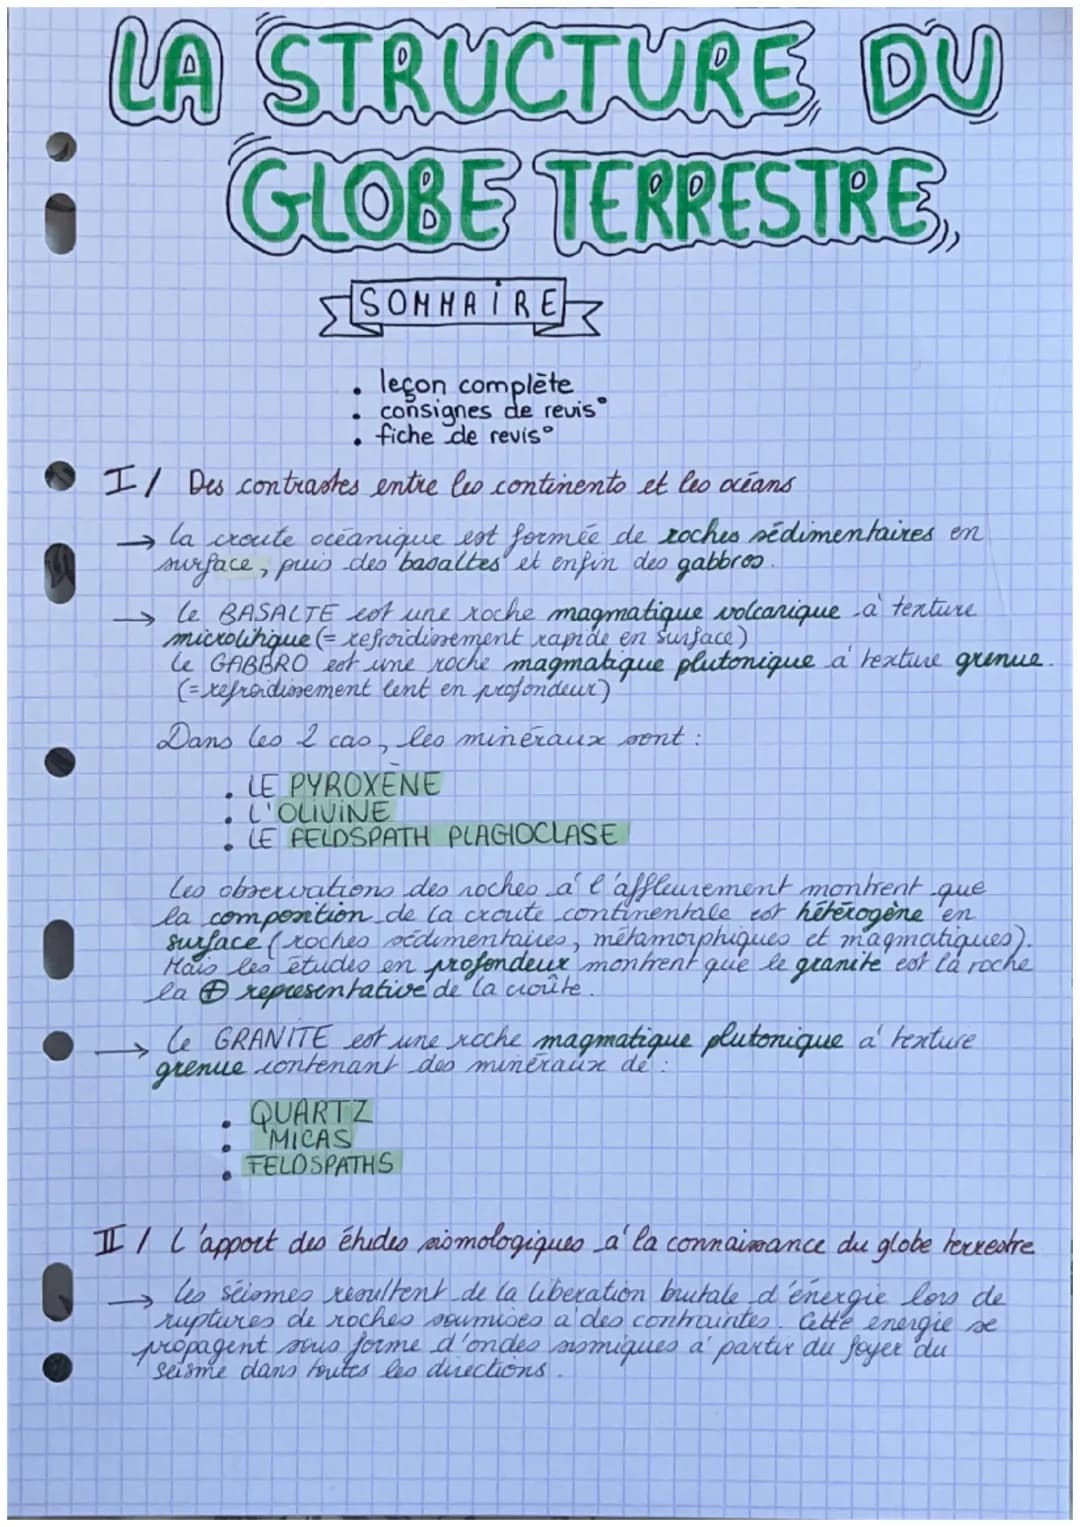 LA STRUCTURE DU
GLOBE TERRESTRE
SOMMAIRE
• leçon complète
• consignes de revis°
• fiche de revis°
I / Des contrastes entre les continents et les océans
→ la croute océanique est formée de roches sédimentaires en
surface, puis des basaltes et enfin des gabbros.
→ Le BASALTE est une roche magmatique volcanique à texture
microlitique (= refroidissement rapide en surface)
Le GABBRO est une roche magmatique plutonique à texture grenue.
(= refroidissement lent en profondeur)
Dans les 2 cas, les minéraux sont :
• LE PYROXÈNE
• L'OLIVINE
• LE FELDSPATH PLAGIOCLASE
Les observations des roches à l'affleurement montrent que
la composition de la croute continentale est hétérogène en
surface (roches sédimentaires, métamorphiques et magmatiques).
Mais les études en profondeur montrent que le granite est la roche
la ⊕ representative de la croûte.
→ Le GRANITE est une roche magmatique plutonique à texture
grenue contenant des minéraux de :
• QUARTZ
• MICAS
• FELDSPATHS
II / L'apport des études sismologiques à la connaissance du globe terrestre
→ Les séismes résultent de la liberation brutale d'énergie lors de
ruptures de roches soumises à des contraintes. Cette énergie se
propagent sous forme d'ondes sismiques à partir du foyer du
séisme dans toutes les directions.